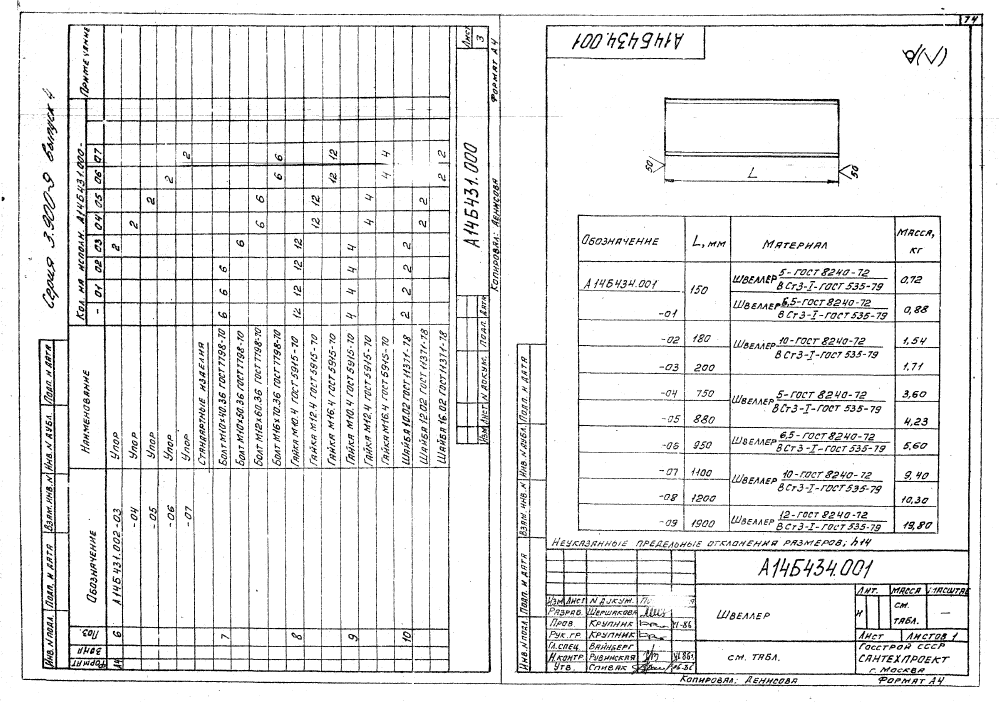 Серия 3.900-9 Выпуск 4
Формат
Зона
Поз.
Обозначение
Наименование
Кол. на исполн. А14Б431.000-
Примечание
- 01 02 03 04 05 06 07
А4 6 А14Б431.002-03 Упор 2
-04 Упор 2
-05 Упор 2
-06 Упор 2
-07 Упор 2
Стандартные изделия
7 Болт М10х40.36 ГОСТ 7798-70 6 6 6
Болт М10х50.36 ГОСТ 7798-70 6
Болт М12х60.36 ГОСТ 7798-70 6 6
Болт М16х70.36 ГОСТ 7798-70 6 6
8 Гайка М10.4 ГОСТ 5915-70 12 12 12 12
Гайка М12.4 ГОСТ 5915-70 12 12
Гайка М16.4 ГОСТ 5915-70 12 12
9 Гайка М10.4 ГОСТ 5915-70 4 4 4 4
Гайка М12.4 ГОСТ 5915-70 4 4
Гайка М16.4 ГОСТ 5915-70 4 4
10 Шайба 10.02 ГОСТ 11371-78 2 2 2 2
Шайба 12.02 ГОСТ 11371-78 2 2
Шайба 16.02 ГОСТ 11371-78 2 2
Инв. N подл. Подп. и дата Взам. инв. N Инв. N дубл. Подп. и дата
Изм Лист N докум. Подп. Дата
А14Б431.000
Лист
3
Копировал: Денисова
Формат А4
74
А14Б434.001
(√)
50
50
L
Обозначение L, мм Материал Масса, кг
А14Б434.001 150 Швеллер 5-ГОСТ 8240-72 / ВСт3-I-ГОСТ 535-79 0,72
-01 Швеллер 6,5-ГОСТ 8240-72 / ВСт3-I-ГОСТ 535-79 0,88
-02 180 Швеллер 10-ГОСТ 8240-72 / ВСт3-I-ГОСТ 535-79 1,54
-03 200 1,71
-04 750 Швеллер 5-ГОСТ 8240-72 / ВСт3-I-ГОСТ 535-79 3,60
-05 880 4,23
-06 950 Швеллер 6,5-ГОСТ 8240-72 / ВСт3-I-ГОСТ 535-79 5,60
-07 1100 Швеллер 10-ГОСТ 8240-72 / ВСт3-I-ГОСТ 535-79 9,40
-08 1200 10,30
-09 1900 Швеллер 12-ГОСТ 8240-72 / ВСт3-I-ГОСТ 535-79 19,80
Неуказанные предельные отклонения размеров; h14
Инв. N подл. Подп. и дата Взам. инв. N Инв. N дубл. Подп. и дата
А14Б434.001
Изм Лист N докум.
Разраб. Шершакова
Пров. Крупник VI-86
Рук. гр Крупник
Гл. спец. Вайнберг
Н контр. Рубинская
Утв. Спивак
Швеллер
см. табл.
Лит. Масса Масштаб
И см. табл. —
Лист Листов 1
Госстрой СССР
САНТЕХПРОЕКТ
г. Москва
Копировал: Денисова
Формат А4